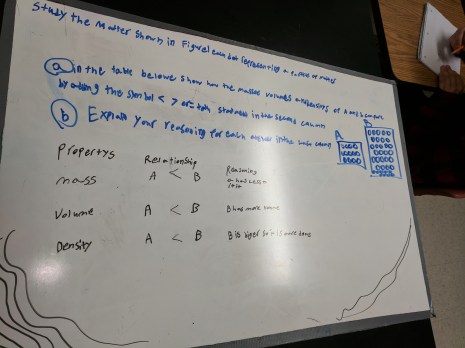 Study the Matter Shown in Figure1 each dot representing a of matter
a in the table below show how the masses volumes densities of A and B compare
by adding the symbol < > or = in the second column
b Explain your reasoning for each answer in the last
A
Propertys Relationship Reasoning
mass A < B a has less
Volume A < B B has more
Density A < B B is bigger so it is more